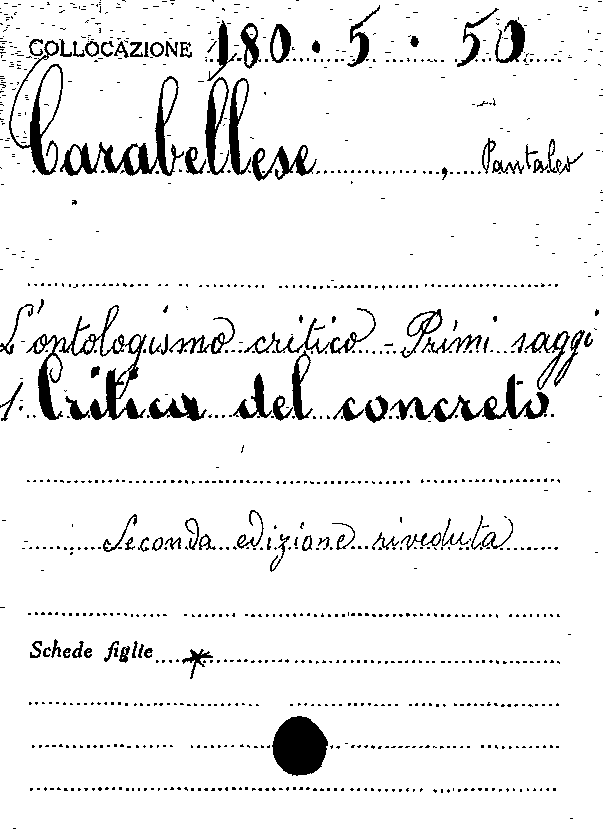 COLLOCAZIONE 180.5.50
Carabellese, Pantaleo
L'ontologismo critico - Primi saggi
1. Critica del concreto
Seconda edizione riveduta
Schede figlie *